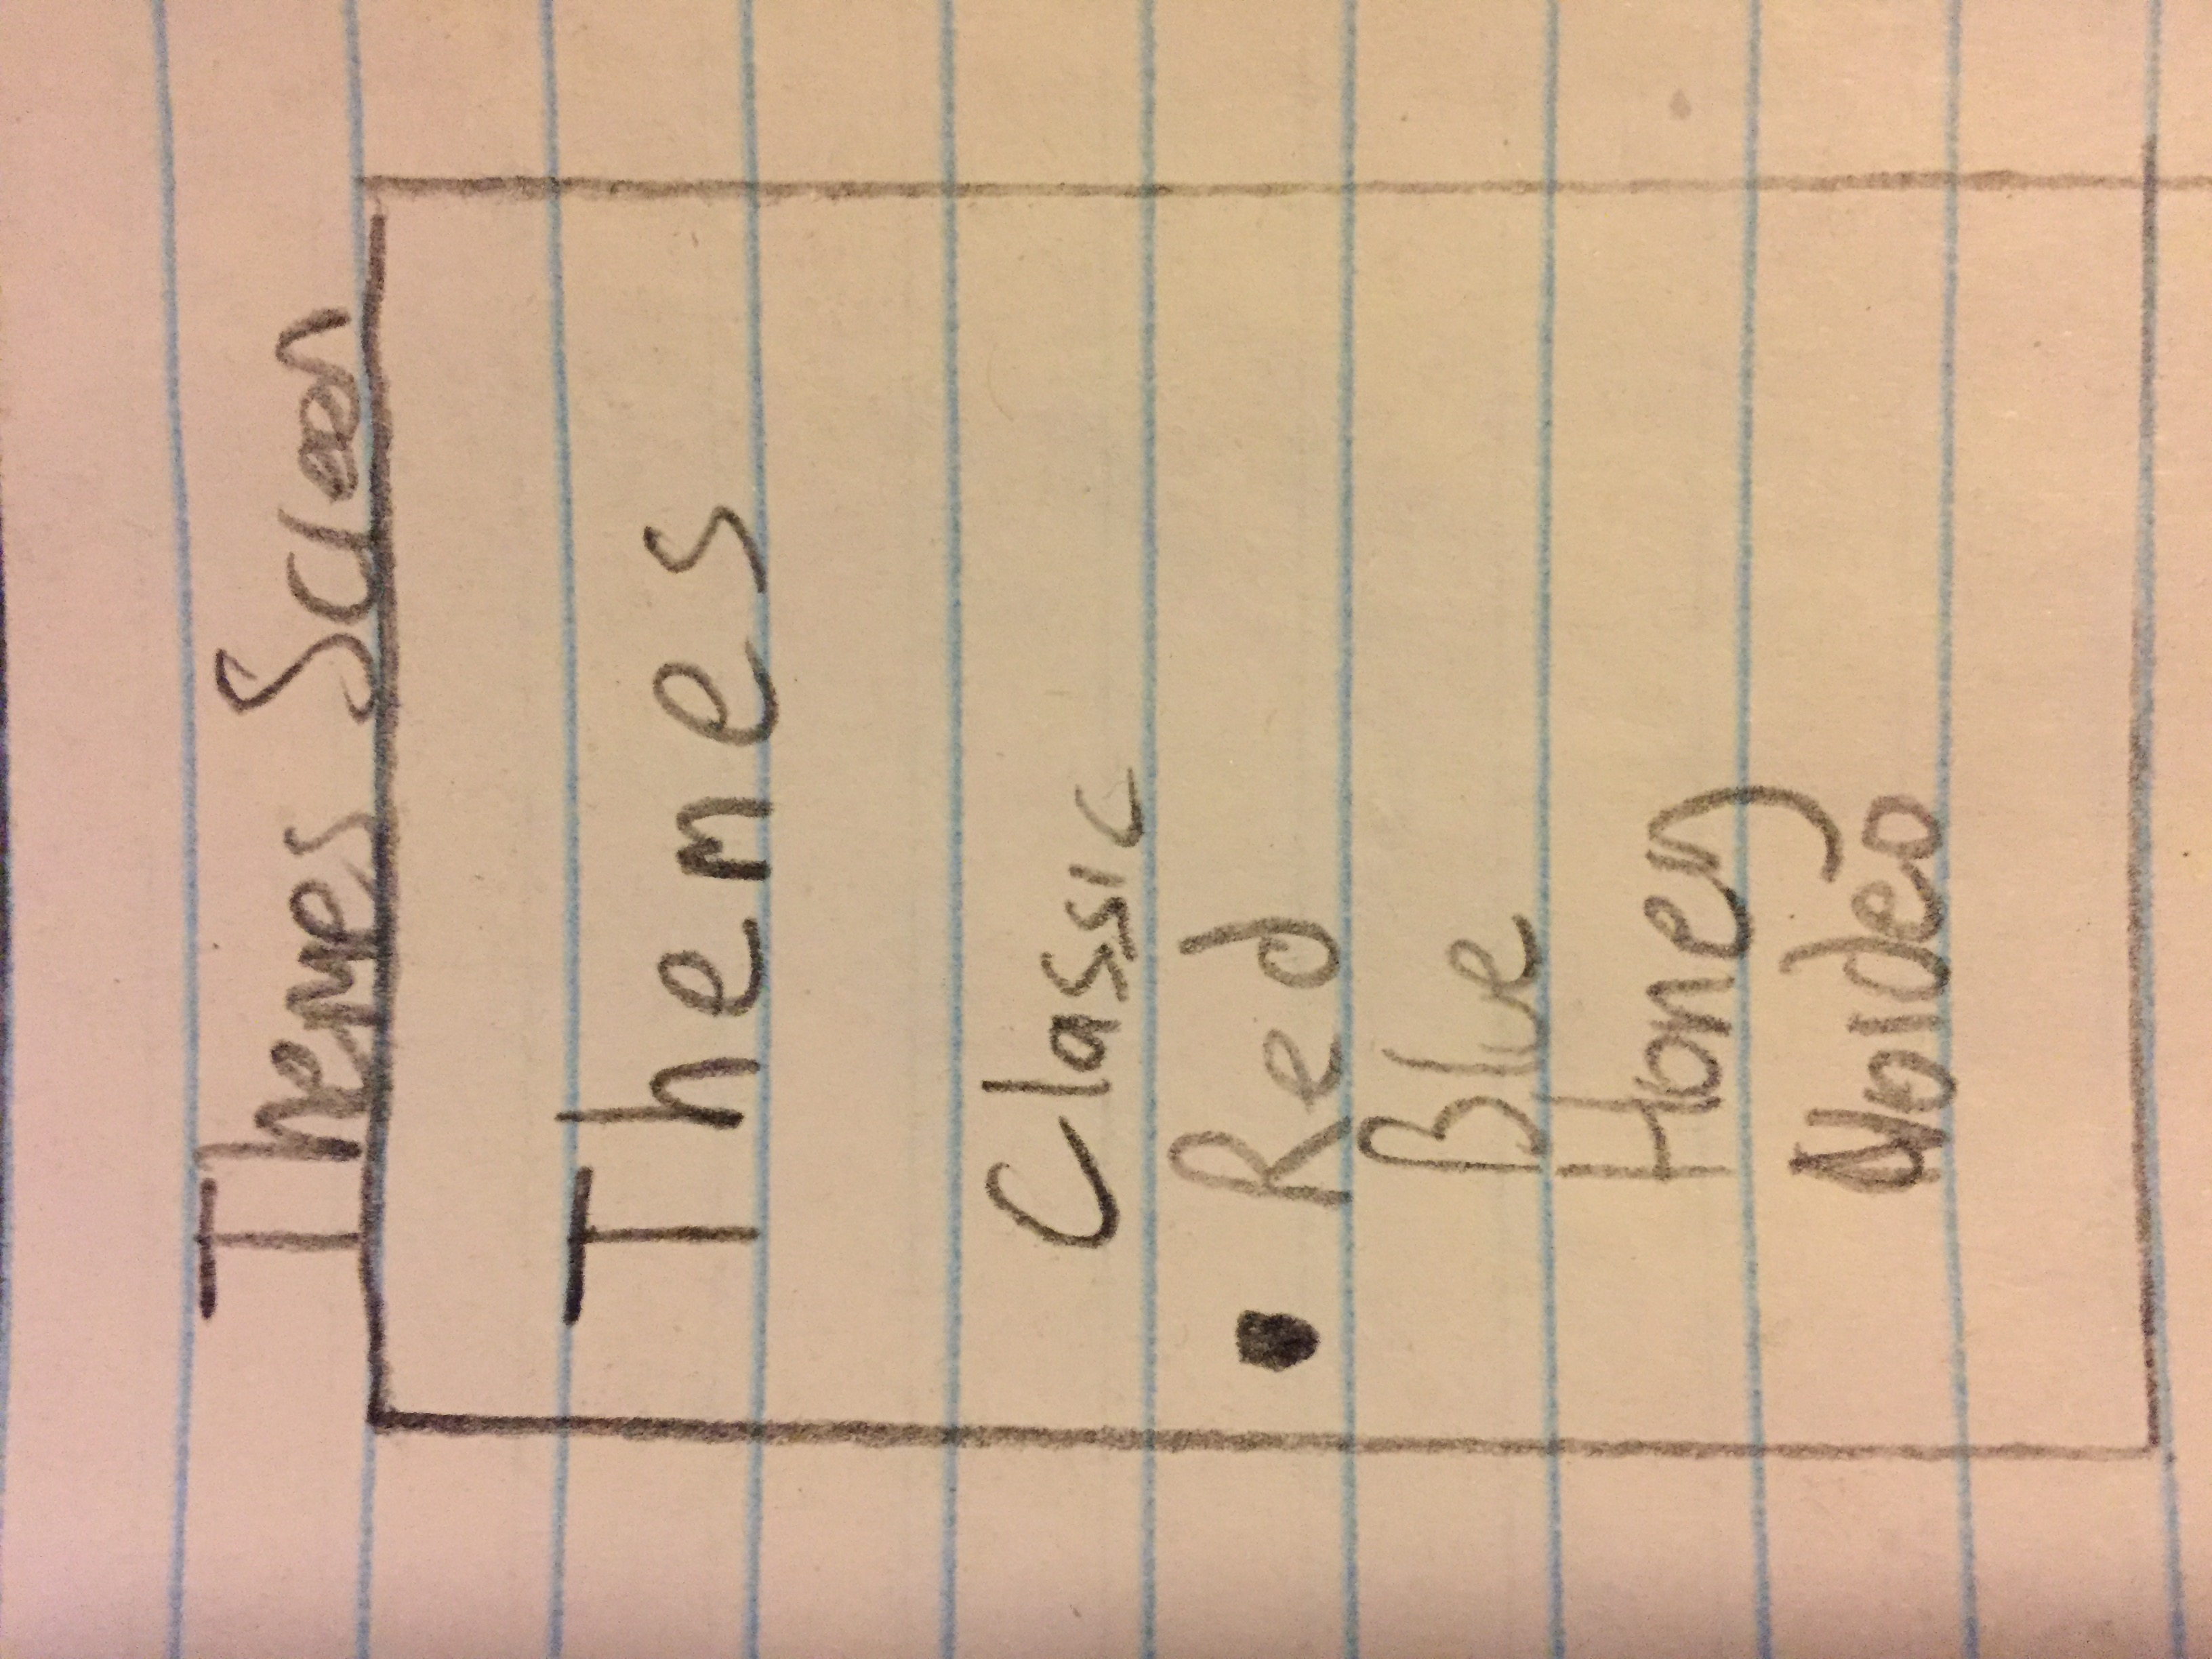 Themes Screen
Themes
Classic
• Red
Blue
Honey
Noideo